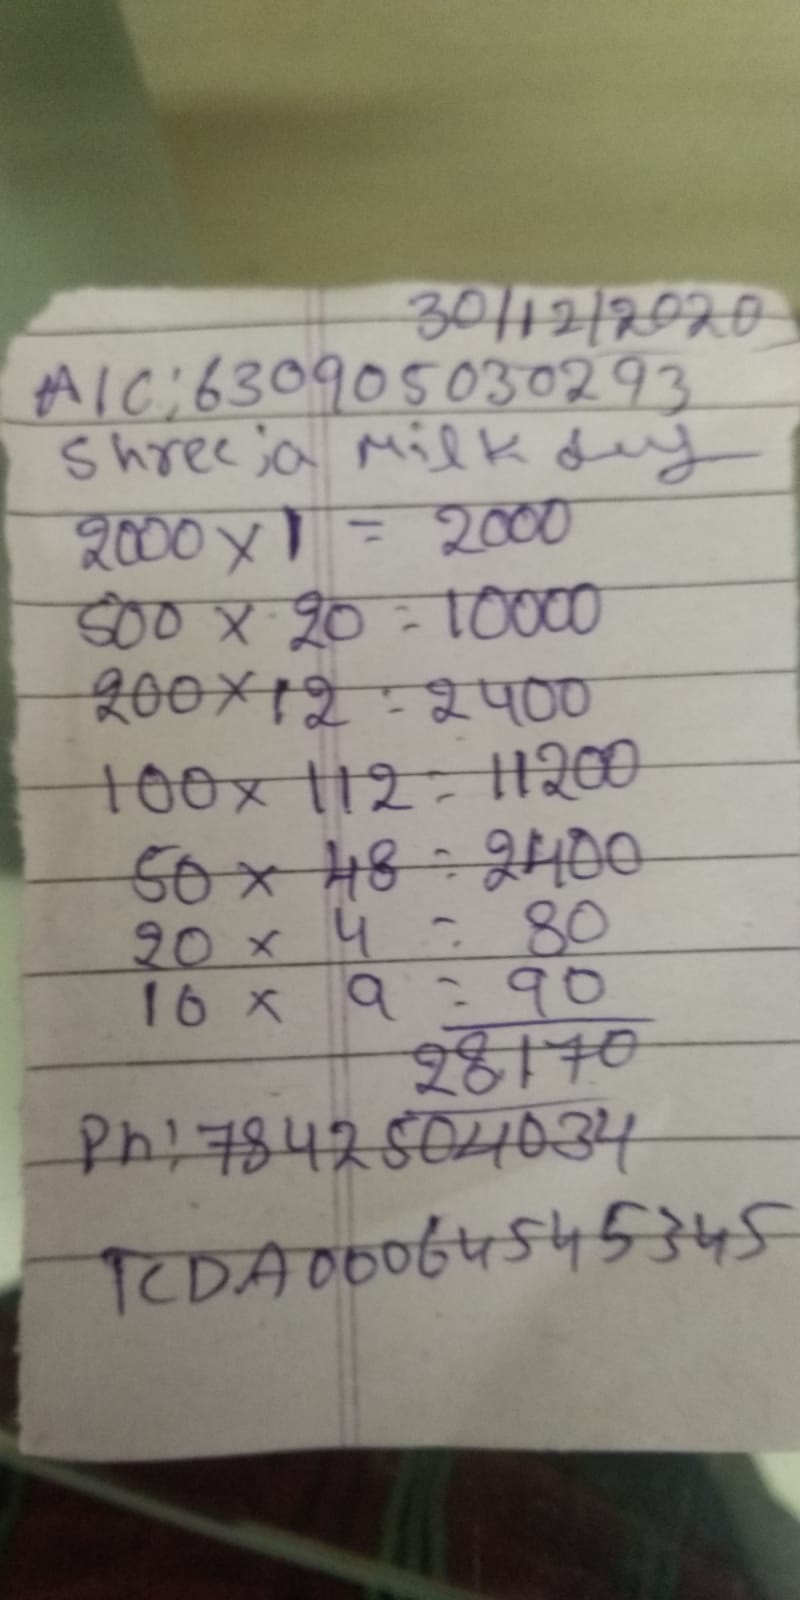 30/12/2020
A/C: 630905030293
Shreeja Milk
2000 x 1 = 2000
500 x 20 = 10000
200 x 12 = 2400
100 x 112 = 11200
50 x 48 = 2400
20 x 4 = 80
10 x 9 = 90
28170
Ph: 7842504034
TCDA00064545345